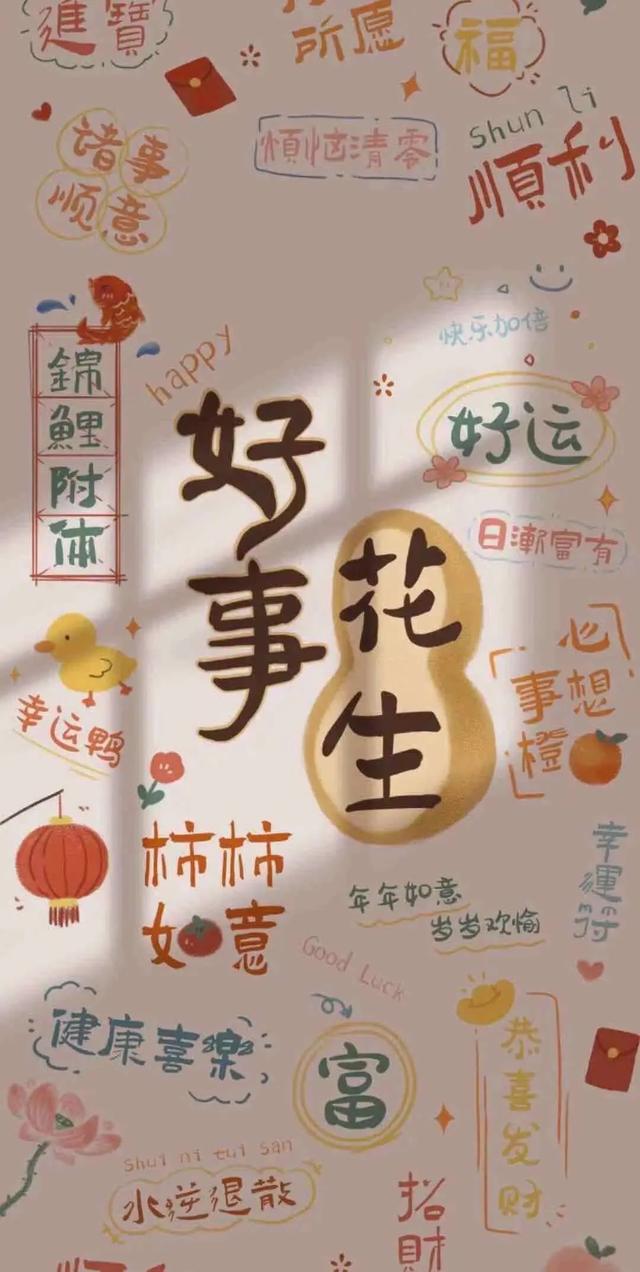 進寶
所愿
福
諸事
顺意
煩恼清零
shun li
順利
快乐加倍
錦鯉附体
happy
好事
花生
好运
日漸富有
幸运鸭
心想
事橙
柿柿
如意
年年如意
岁岁欢愉
幸運符
Good Luck
健康喜樂
富
恭喜发财
shui ni tui san
水逆退散
招財